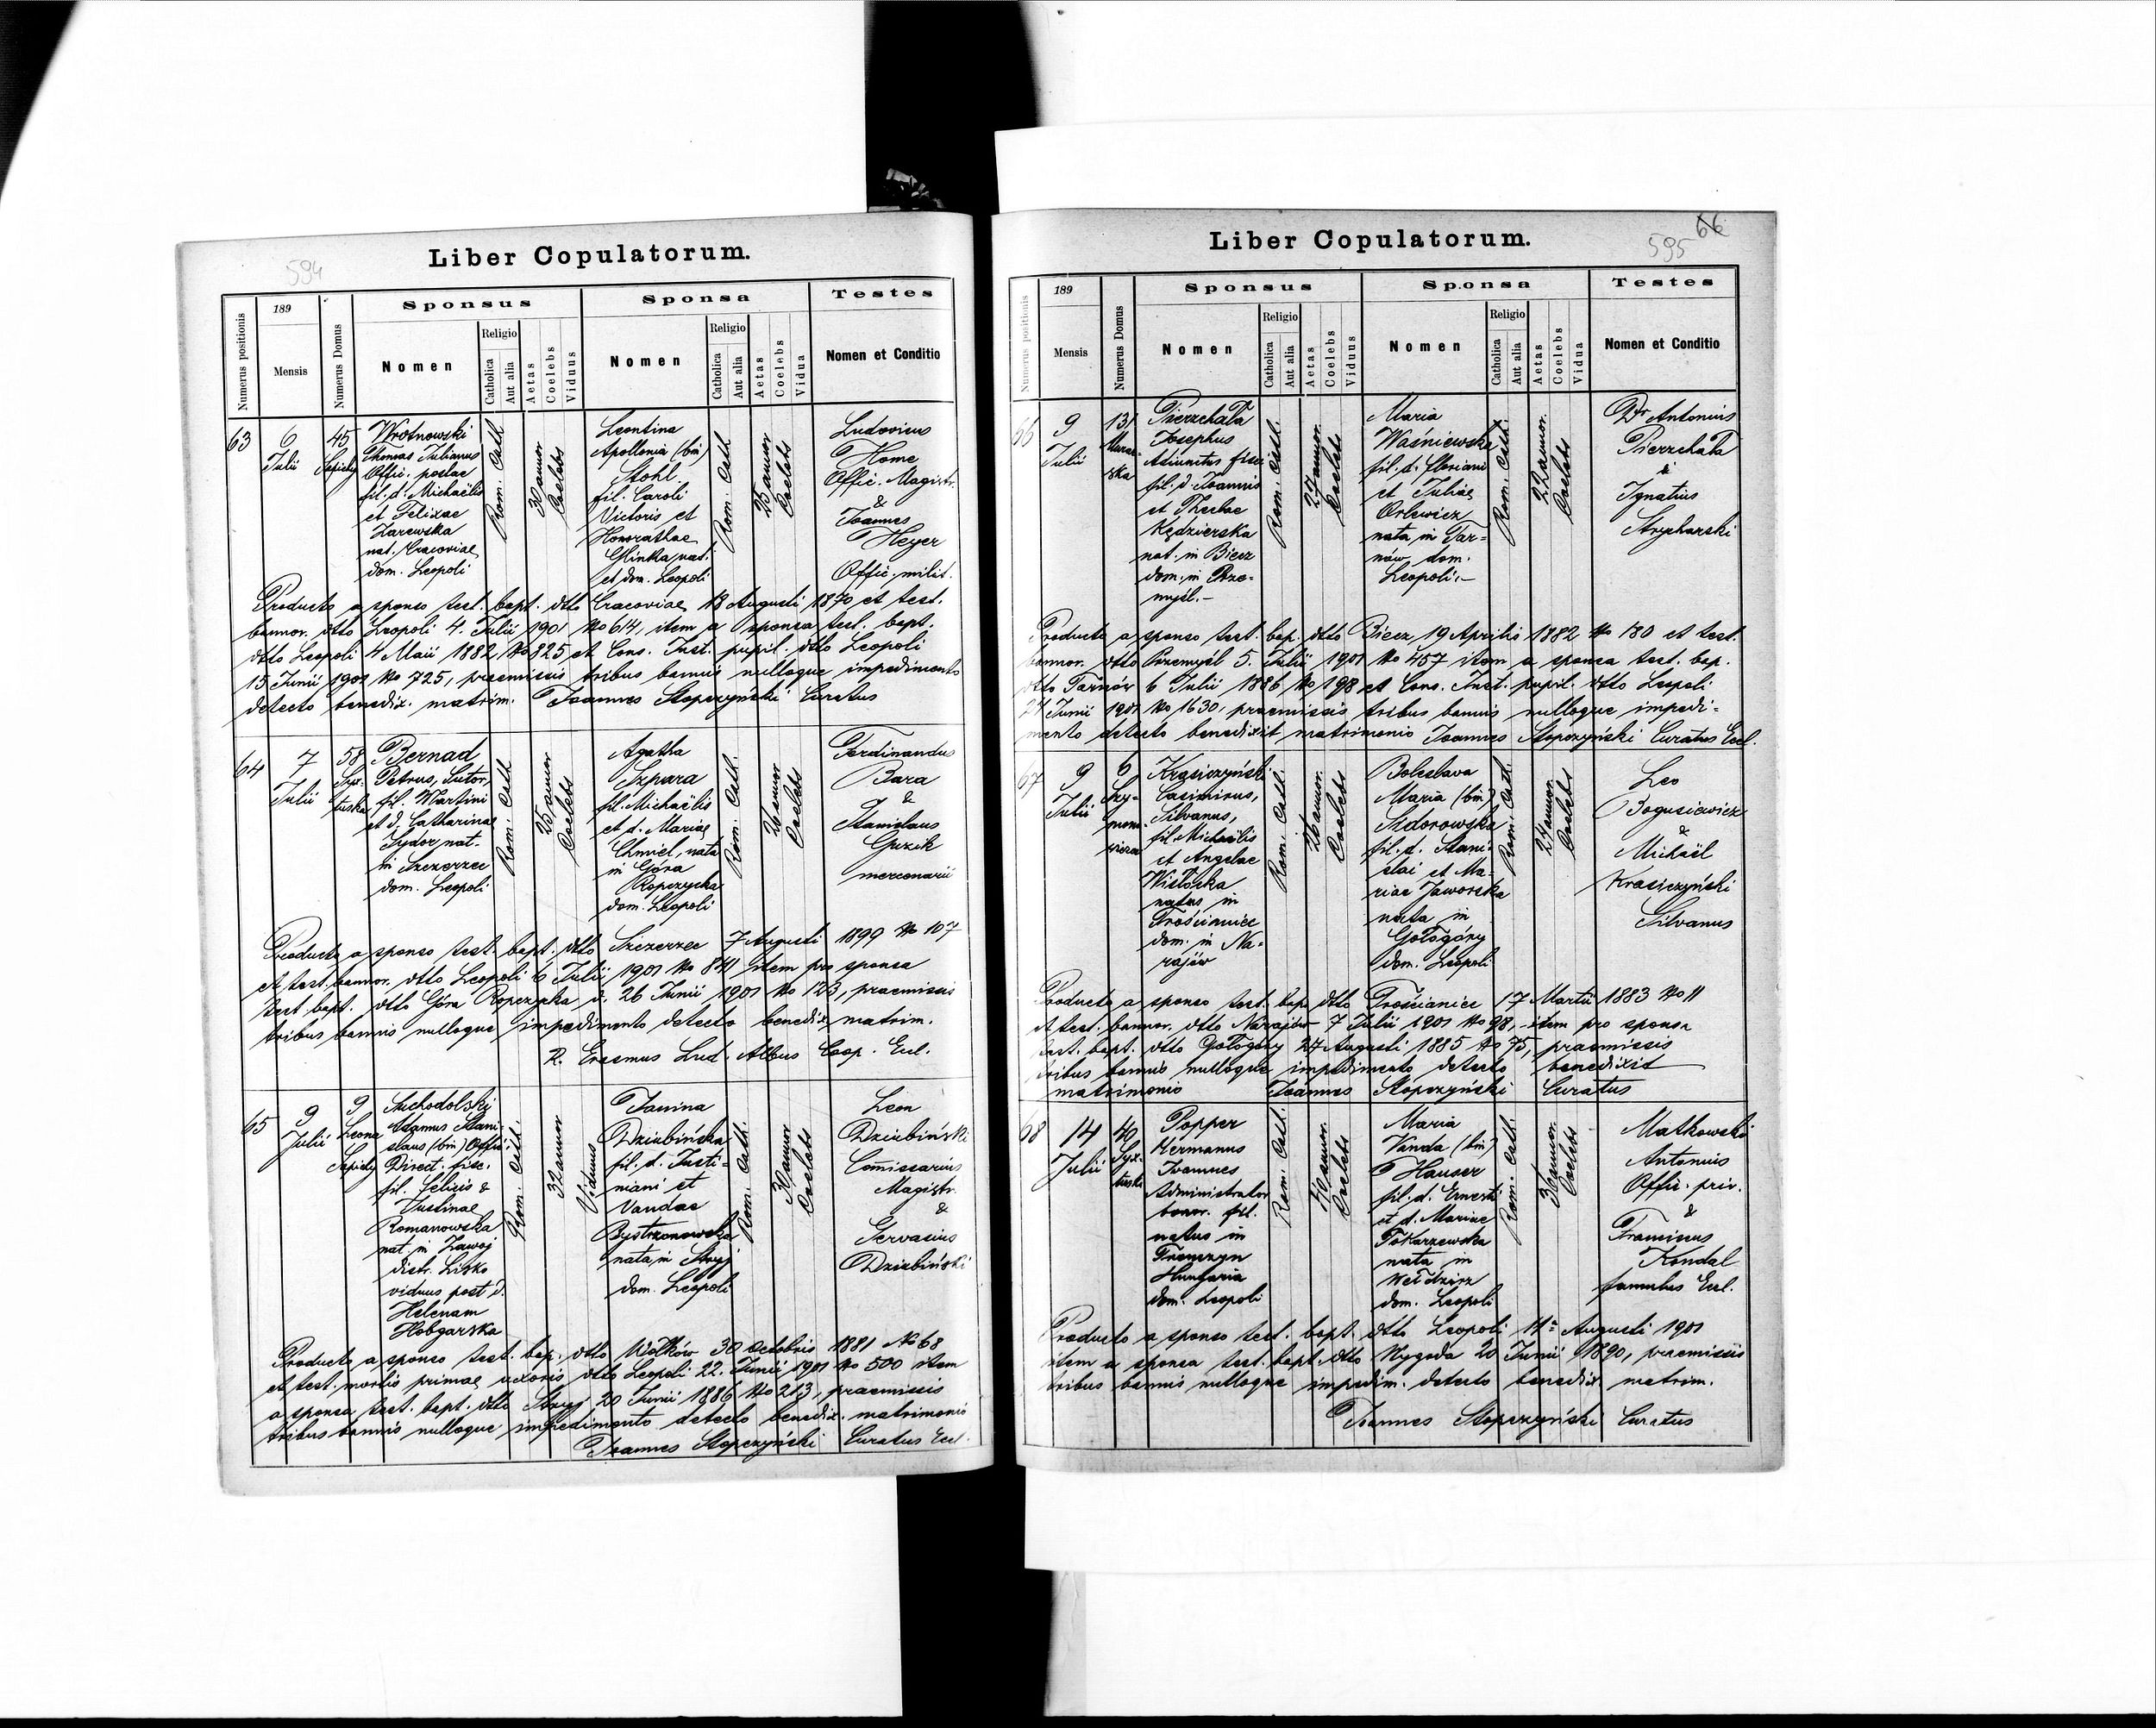 594
Liber Copulatorum.
Numerus positionis
189
Mensis
Numerus Domus
Sponsus
Nomen
Religio
Catholica
Aut alia
Aetas
Coelebs
Viduus
Sponsa
Nomen
Religio
Catholica
Aut alia
Aetas
Coelebs
Vidua
Testes
Nomen et Conditio
63
6
Julii
45
Sapiehy
Wrotnowski
Thomas Julianus
Offic. postae
fil. d. Michaëlis
et Felixae
Zarewska
nat. Cracoviae
dom. Leopoli
Rom. Cath.
30 annor
Coelebs
Leontina
Apollonia (bin)
Stohl
fil. Caroli
Victoris et
Honorathae
Glinka nat.
et dom. Leopoli
Rom. Cath
25 annor
Coelebs
Ludovicus
Home
Offic. Magistr.
&
Joannes
Heyer
Offic. milit.
Producto a sponso test. bapt. dtto Cracoviae 18 Augusti 1870 et test.
bannor. dtto Leopoli 4. Julii 1901 No 614, item a sponsa test. bapt.
dtto Leopoli 4 Maii 1882 No 325 et Cons. Inst. pupil. dtto Leopoli
15 Junii 1901 No 725, praemissis tribus bannis nulloque impedimento
detecto benedix. matrim. Joannes Stopczyński Curatus
64
7
Julii
58
Syx-
tuska
Bernad
Petrus, Sutor,
fil. Martini
et d. Catharinae
Sydor nat.
in Szczerzec
dom. Leopoli
Rom. Cath
25 annor
Coelebs
Agatha
Szpara
fil. Michaëlis
et d. Mariae
Chmiel, nata
in Góra
Ropczycka
dom. Leopoli
Rom. Cath.
26 annor
Coelebs
Ferdinandus
Bara
&
Stanislaus
Guzik
mercenarii
Producto a sponso test. bapt. dtto Szczerzec 7 Augusti 1899 No 107
et test. bannor. dtto Leopoli 6 Julii 1901 No 841 item pro sponsa
test. bapt. dtto Góra Ropczycka d. 26 Junii 1901 No 123, praemissis
tribus bannis nulloque impedimento detecto benedix. matrim.
R. Erasmus Lud. Albus Coop. Eccl.
65
9
Julii
9
Leona
Sapiehy
Suchodolski
Adamus Stani-
slaus (bin) Offic.
Direct. fisc.
fil. Felicis &
Justinae
Romanowska
nat in Zawoj
distr. Lisko
viduus post d.
Helenam
Hobgarska
Rom. Cath.
32 annor
Viduus
Janina
Dziubińska
fil. d. Justi-
niani et
Vandae
Bystrzonowska
nata in Stryj
dom. Leopoli
Rom. Cath.
30 annor
Coelebs
Leon
Dziubiński
Comissarius
Magistr.
&
Gervasius
Dziubiński
Producto a sponso test. bap. dtto Wołków 30 Octobris 1881 No 68
et test. mortis primae uxoris dtto Leopoli 22. Junii 1901 No 500 item
a sponsa test. bapt. dtto Stryj 20 Junii 1886 No 213, praemissis
tribus bannis nulloque impedimento detecto benedix. matrimonio
Joannes Stopczyński Curatus Eccl.
66
595
Liber Copulatorum.
Numerus positionis
189
Mensis
Numerus Domus
Sponsus
Nomen
Religio
Catholica
Aut alia
Aetas
Coelebs
Viduus
Sponsa
Nomen
Religio
Catholica
Aut alia
Aetas
Coelebs
Vidua
Testes
Nomen et Conditio
66
9
Julii
131
Pierzchała
Josephus
Adiunctus fisci
fil. d. Joannis
et Theclae
Kędzierska
nat. in Biecz
dom. in Prze-
myśl.-
Rom. Cath.
27 annor.
Coelebs
Maria
Waśniewska
fil. d. Floriani
et Juliae
Orlewicz
nata in Tar=
nów dom.
Leopoli.-
Rom. Cath.
22 annor.
Coelebs
Dr Antonius
Pierzchała
&
Ignatius
Strycharski
Producto a sponso test. bap. dtto Biecz 19 Aprilis 1882 No 180 et test.
bannor. dtto Przemyśl 5. Julii 1901 No 457 item a sponsa test. bap.
dtto Tarnów 6 Julii 1886 No 198 et Cons. Inst. pupil. dtto Leopoli
24 Junii 1901 No 1630, praemissis tribus bannis nulloque impedi-
mento detecto benedixit matrimonio Joannes Stopczyński Curatus Eccl.
67
9
Julii
6
Szy-
mono-
wicza
Krasiczyński
Casimirus,
Silvanus,
fil. Michaëlis
et Angelae
Wisłocka
natus in
Trościaniec
dom. in Na-
rajów
Rom. Cath.
26 annor.
Coelebs
Boleslava
Maria (bin)
Sidorowska
fil. d. Stani-
slai et Ma-
riae Jaworska
nata in
Gołogóry
dom. Leopoli
Rom. Cath.
24 annor.
Coelebs
Leo
Bogusiewicz
&
Michaël
Krasiczyński
Silvanus
Producto a sponso test. bap. dtto Trościaniec 17 Martii 1883 No 11
et test. bannor. dtto Narajów 7 Julii 1901 No 98, item pro sponsa
test. bapt. dtto Gołogóry 27 Augusti 1885 No 75, praemissis
tribus bannis nulloque impedimento detecto benedixit
matrimonio Joannes Stopczyński Curatus
68
14
Julii
40
Syx-
tuska
Popper
Hermannus
Joannes
Administrator
bonor. fil.
natus in
Trenczyn
Hungaria
dom. Leopoli
Rom. Cath.
40 annor.
Coelebs
Maria
Vanda (bin)
Hauser
fil. d. Ernesti
et d. Mariae
Tokarzewska
nata in
Wełdzirz
dom. Leopoli
Rom. Cath.
31 annor.
Coelebs
Matkowski
Antonius
Offic. priv.
&
Franciscus
Kondal
famulus Eccl.
Producto a sponso test. bapt. dtto Leopoli 11 Augusti 1901
item a sponsa test. bapt. dtto Wygoda 20 Junii 1890, praemissis
tribus bannis nulloque impedim. detecto benedix. matrim.
Joannes Stopczyński Curatus